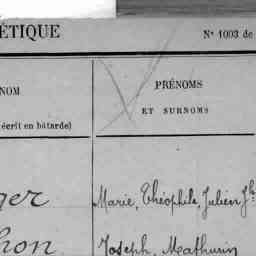 ÉTIQUE
N° 1003 de
NOM
PRÉNOMS
ET SURNOMS
écrit en bâtarde)
ger
Marie, Théophile, Julien Jh
hon
Joseph, Mathurin